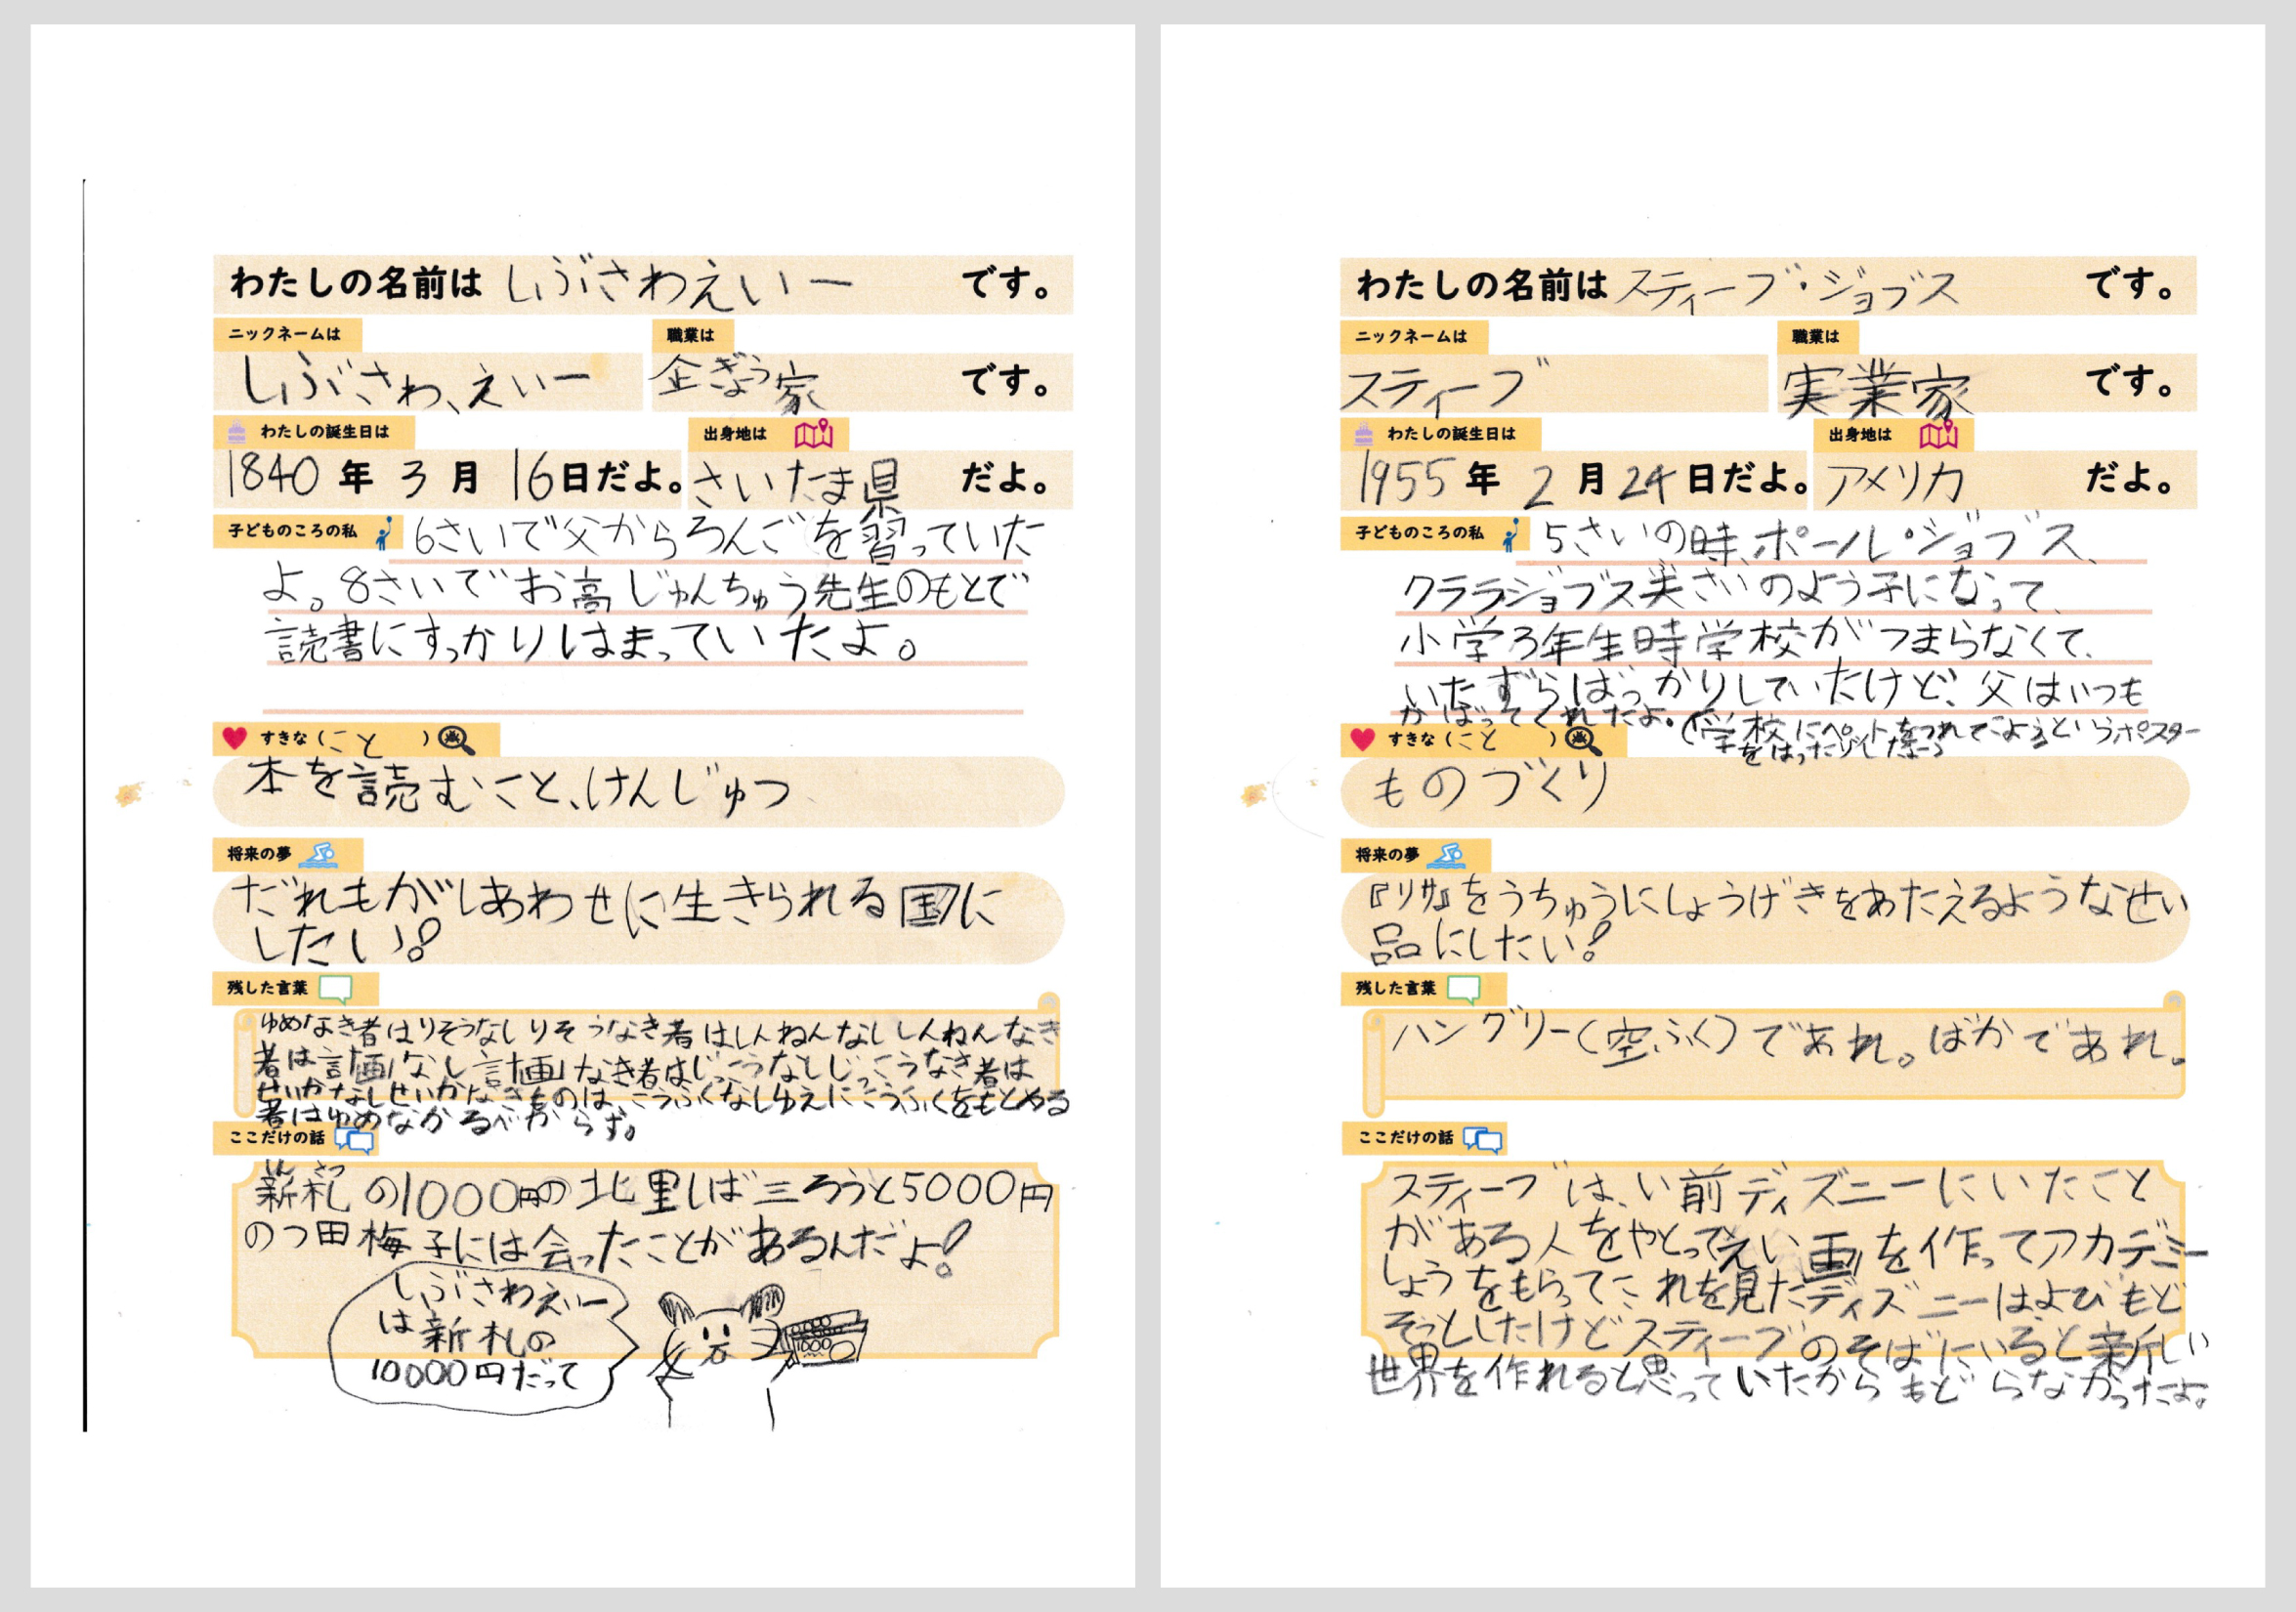 わたしの名前は しぶさわえいー です。
ニックネームは 職業は
しぶさわ、えいー 企ぎょう家 です。
わたしの誕生日は 出身地は
1840年 3月 16日だよ。さいたま県 だよ。
子どものころの私 6さいで父からろんごを習っていた
よ。8さいでお高じゅんちゅう先生のもとで
読書にすっかりはまっていたよ。
すきな(こと)
本を読むこと、けんじゅつ
将来の夢
だれもがしあわせに生きられる国に
したい!
残した言葉
ゆめなき者はりそうなしりそうなき者はしんねんなししんねんなき
者は計画なし計画なき者はじっこうなしじっこうなき者は
せいかなしせいかなきものは、こうふくなしゆえにこうふくをもとめる
者はゆめなかるべからず。
ここだけの話
しん さつ
新札の1000円の北里しば三ろうと5000円
のつ田梅子には会ったことがあるんだよ!
しぶさわえいー
は新札の
10000円だって
1000
わたしの名前は スティーブ・ジョブス です。
ニックネームは 職業は
スティーブ 実業家 です。
わたしの誕生日は 出身地は
1955年 2月24日だよ。アメリカ だよ。
子どものころの私 5さいの時、ポール・ジョブス、
クララジョブス夫さいのよう子になって、
小学3年生時学校がつまらなくて、
いたずらばっかりしていたけど、父はいつも
かばってくれたよ。(学校にペットをつれてこようというポスター
をはったりしたよ)
すきな(こと)
ものづくり
将来の夢
『リサ』をうちゅうにしょうげきをあたえるようなせい
品にしたい!
残した言葉
ハングリー(空ふく)であれ。ばかであれ。
ここだけの話
スティーブは、い前ディズニーにいたこと
がある人をやとってえい画を作ってアカデミー
しょうをもらってこれを見たディズニーはよびもど
そうとしたけどスティーブのそばにいると新しい
世界を作れると思っていたからもどらなかったよ。